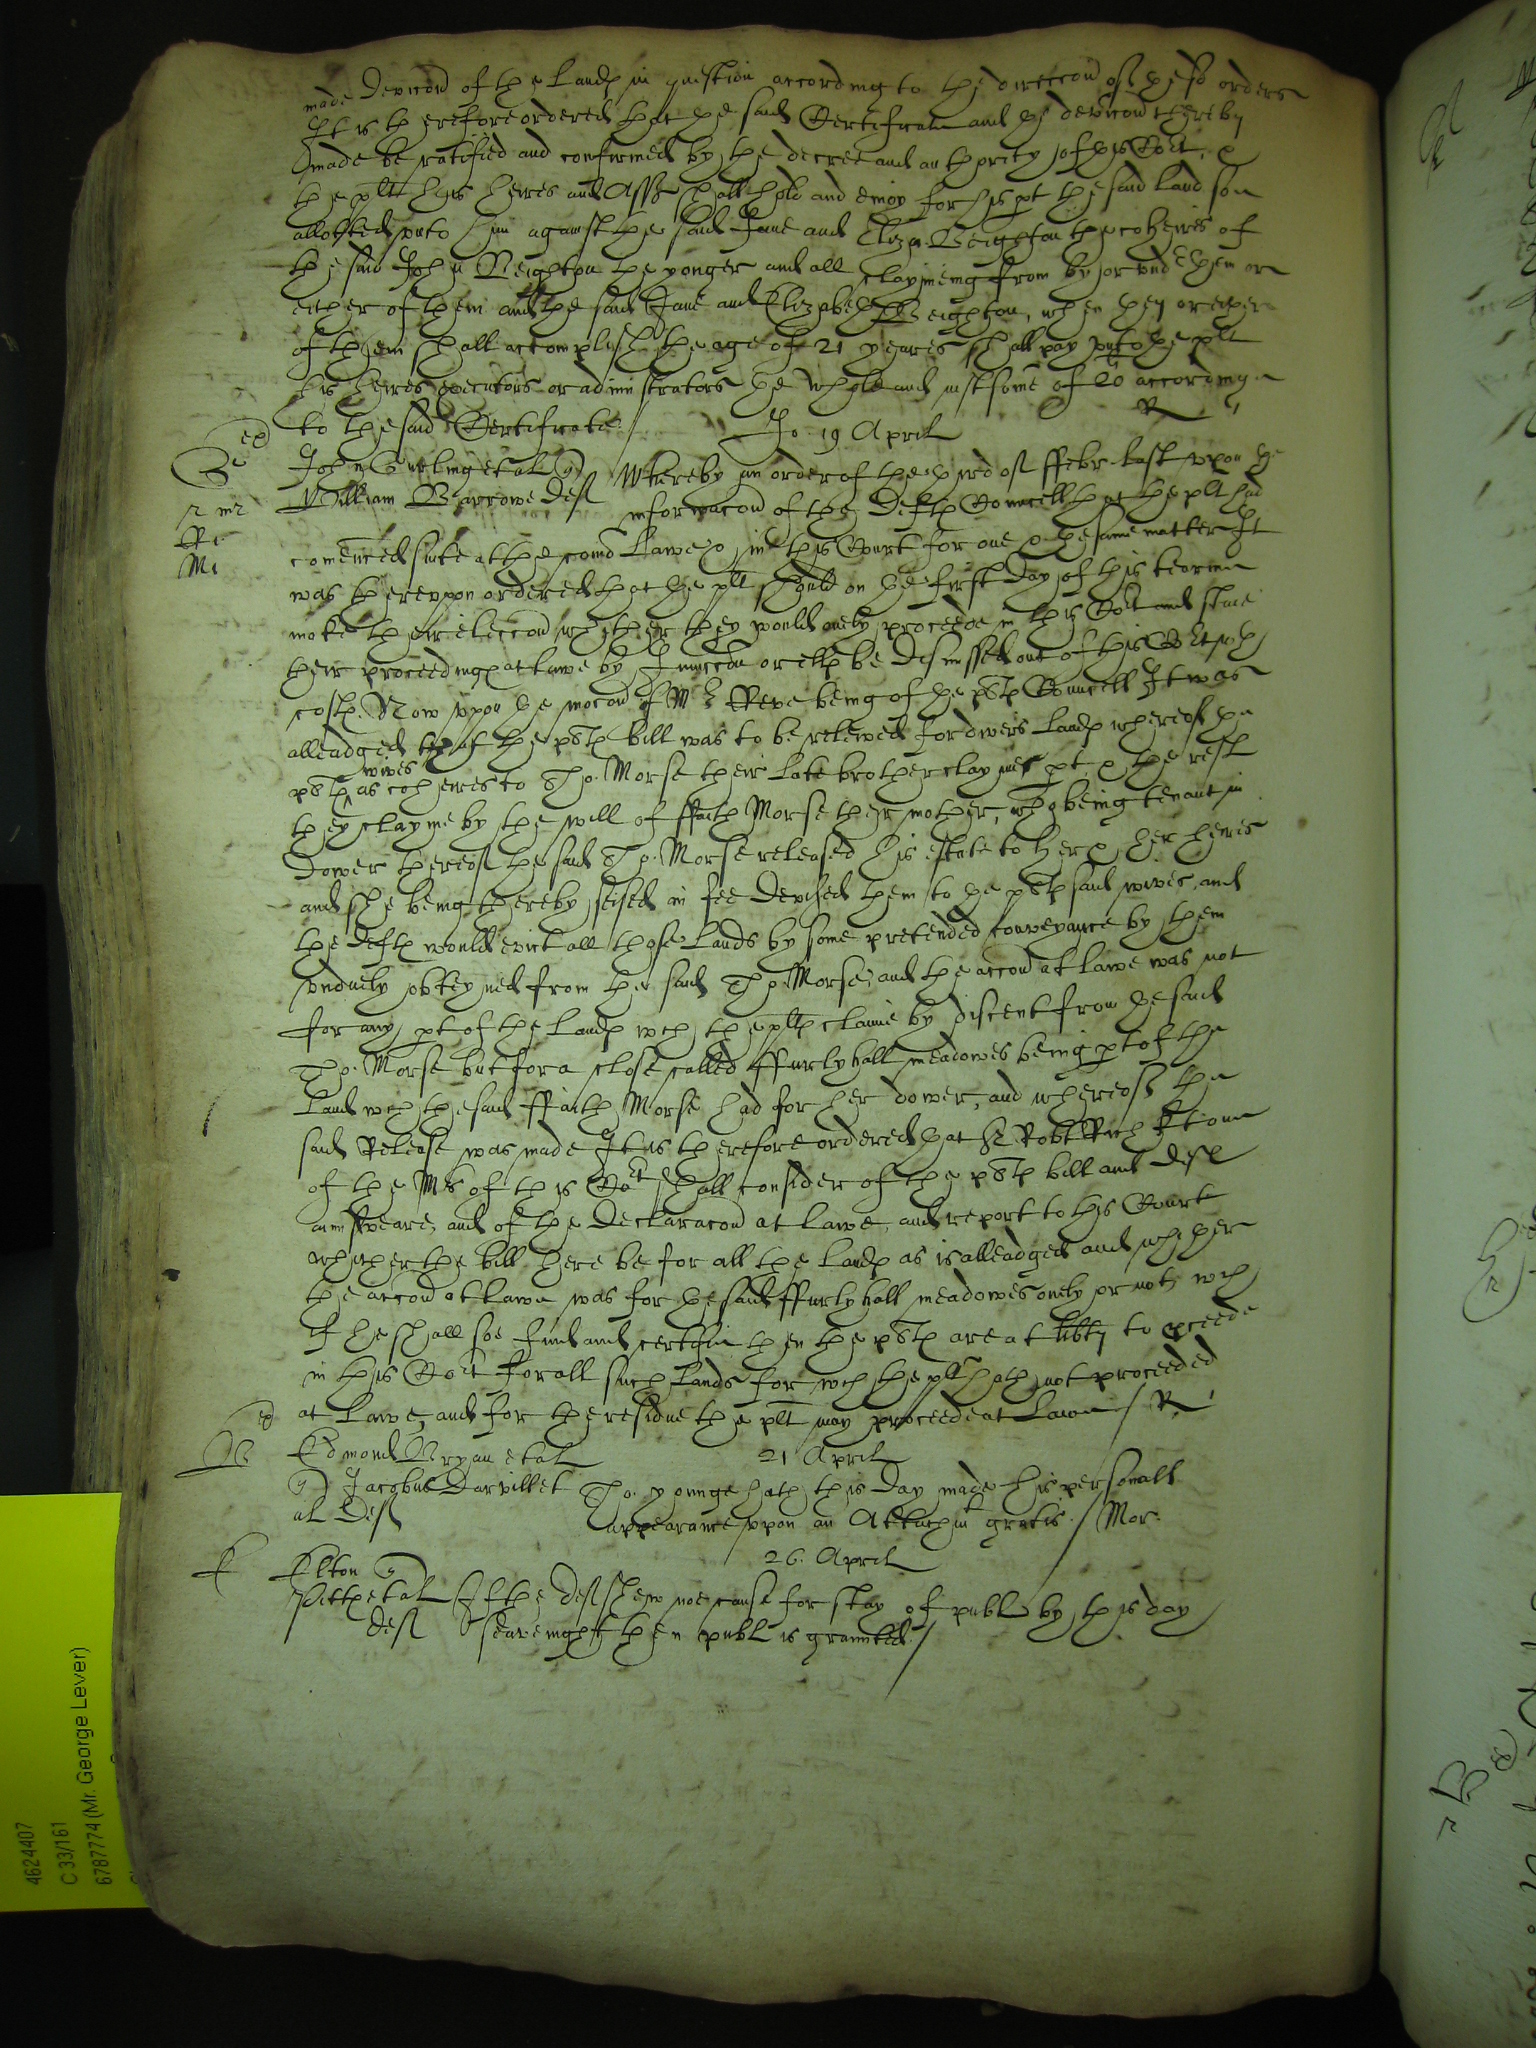 made devicon of the Landp in question according to the direccon of the sd orders
It is therefore ordered that the said Certificate and the devicon thereby
made be ratified and confirmed by the decree and authority of this Cort, &
the plt his heires and Assz shall hold and enioy for his pt the said land soe
allotted vnto him against the said Jane and Eliza: Beighton the coheires of
the said John Beighton the yonger and all claymeing from by or vnd them or
either of them and the said Jane and Elizabeth Beighton, when they or either
of them shall accomplish the age of 21 yeares shall pay vnto the plt
his heires executors or administrators the whole and iust some of according
to the said Certificate / R
Jo. 19 April
ex
John Gurling et al q
William Barrowe Def
Whereby an order of the third of ffebr. last vpon the
informacon of the Deftp Councell that the plt had
comenced suite at the comon Lawe & in this Court for one & the same matter It
was therevpon ordered that the plt should on the first day of this tearme
make their eleccon whether they would onely proceede in this Cort and staie
their proceedingp at lawe by Iniuccon or ellp be dismissed out of this Cort wth
costp. Now vpon the mocon of Mr Reve being of the pltp Councell It was
alleadged that the pltp bill was to be releived for divers Landp whereof the
pltp wives as coheires to Tho. Morse their late brother clayme pt & the rest
they clayme by the will of ffaith Morse their mother, who being tenant in
dower thereof the said Tho. Morse released his estate to her & her heires
and she being thereby seised in fee devised them to the pltp said wives, and
the deftp would evict all those Lands by some pretended conveyance by them
vnduely obteyned from the said Tho. Morse, and the accon at lawe was not
for any pt of the Landp wch the pltp claime by discent from the said
Tho. Morse but for a close called ffurlyhall meadowes being pt of the
Land wch the said ffaith Morse had for her dower, and whereof the
said Release was made It is therefore ordered that Sr Robt Rich kt one
of the Mrs of this Cort shall consider of the pltp bill and defp
aunsweare, and of the Declaracon at Lawe, and report to this Court
whether the bill here be for all the Landp as is alleadged and whether
the accon at lawe was for the said ffurlyhall meadowes onely or not, wch
if he shall soe find and certifie then the pltp are at libty to pceede
in this Cort for all such Lands for wch the plt hath not proceeded
at Lawe, and for the residue the plt may proceede at Lawe / R
21 April
Edmond Bryan et al
q Jacobus Darvill et
al Def
Tho. younge hath this day made his personall
appearance vpon an Attachmt gratis / Mor:
26. April
E Elton q
Pitt et al
def
If the def shew noe cause for stay of publ by this day
seaveinght then publ is graunted /
4624407
C 33/161
6787774 (Mr. George Lever)